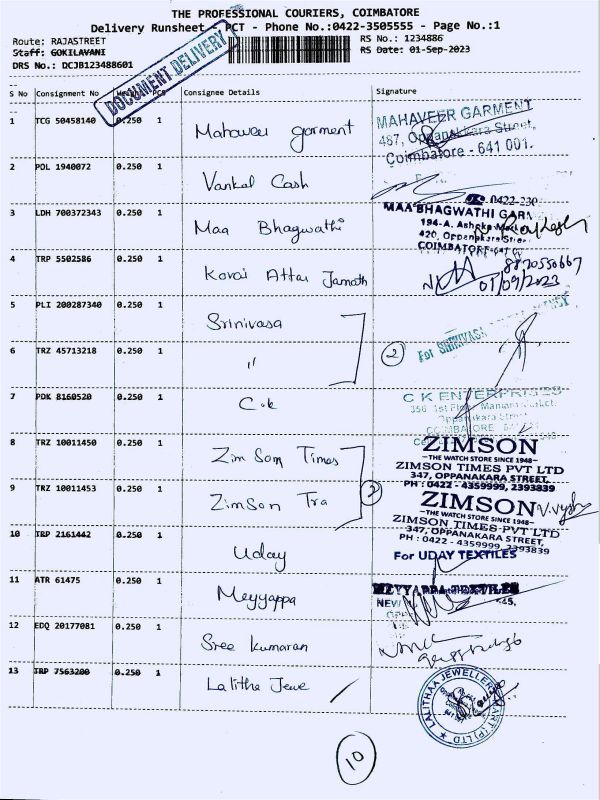 THE PROFESSIONAL COURIERS, COIMBATORE
Delivery Runsheet - PCT - Phone No.:0422-3505555 - Page No.:1
Route: RAJASTREET
RS No.: 1234886
Staff: GOKILAVANI
RS Date: 01-Sep-2023
DRS No.: DCJB123488601
DOCUMENT DELIVERY
S No Consignment No Weight PCS Consignee Details Signature
1 TCG 50458140 0.250 1 Mahaveer garment
MAHAVEER GARMENT
487, Oppanakkara Street,
Coimbatore - 641 001.
2 POL 1940072 0.250 1 Vankal Cash
3 LDH 700372343 0.250 1 Maa Bhagwathi
0422-230
MAA BHAGWATHI GARM
194-A, Ashoka
420, Oppanakara Stree
COIMBATORE-641 0
4 TRP 5502586 0.250 1 Kovai Attar Jamath
8870550667
01/09/2023
5 PLI 200287340 0.250 1 Srinivasa
6 TRZ 45713218 0.250 1 "
2
For SRINIVASA
7 PDK 8160520 0.250 1 C.k
C K ENTERPRISES
356, 1st Floor
Oppanakara Street
COIMBATORE
8 TRZ 10011450 0.250 1 Zim Som Times
ZIMSON
—THE WATCH STORE SINCE 1948—
ZIMSON TIMES PVT LTD
347, OPPANAKARA STREET,
PH : 0422 - 4359999, 2393839
9 TRZ 10011453 0.250 1 Zimson Tra
2
ZIMSON
—THE WATCH STORE SINCE 1948—
ZIMSON TIMES PVT LTD
347, OPPANAKARA STREET,
PH : 0422 - 4359999, 2393839
10 TRP 2161442 0.250 1 Uday
For UDAY TEXTILES
11 ATR 61475 0.250 1 Meyyappa
MEYYAPPA TEXTILES
NEW
12 EDQ 20177081 0.250 1 Sree kumaran
13 TRP 7563200 0.250 1 Lalitha Jewe
LALITHAA JEWELLERY MART (P) LTD
10